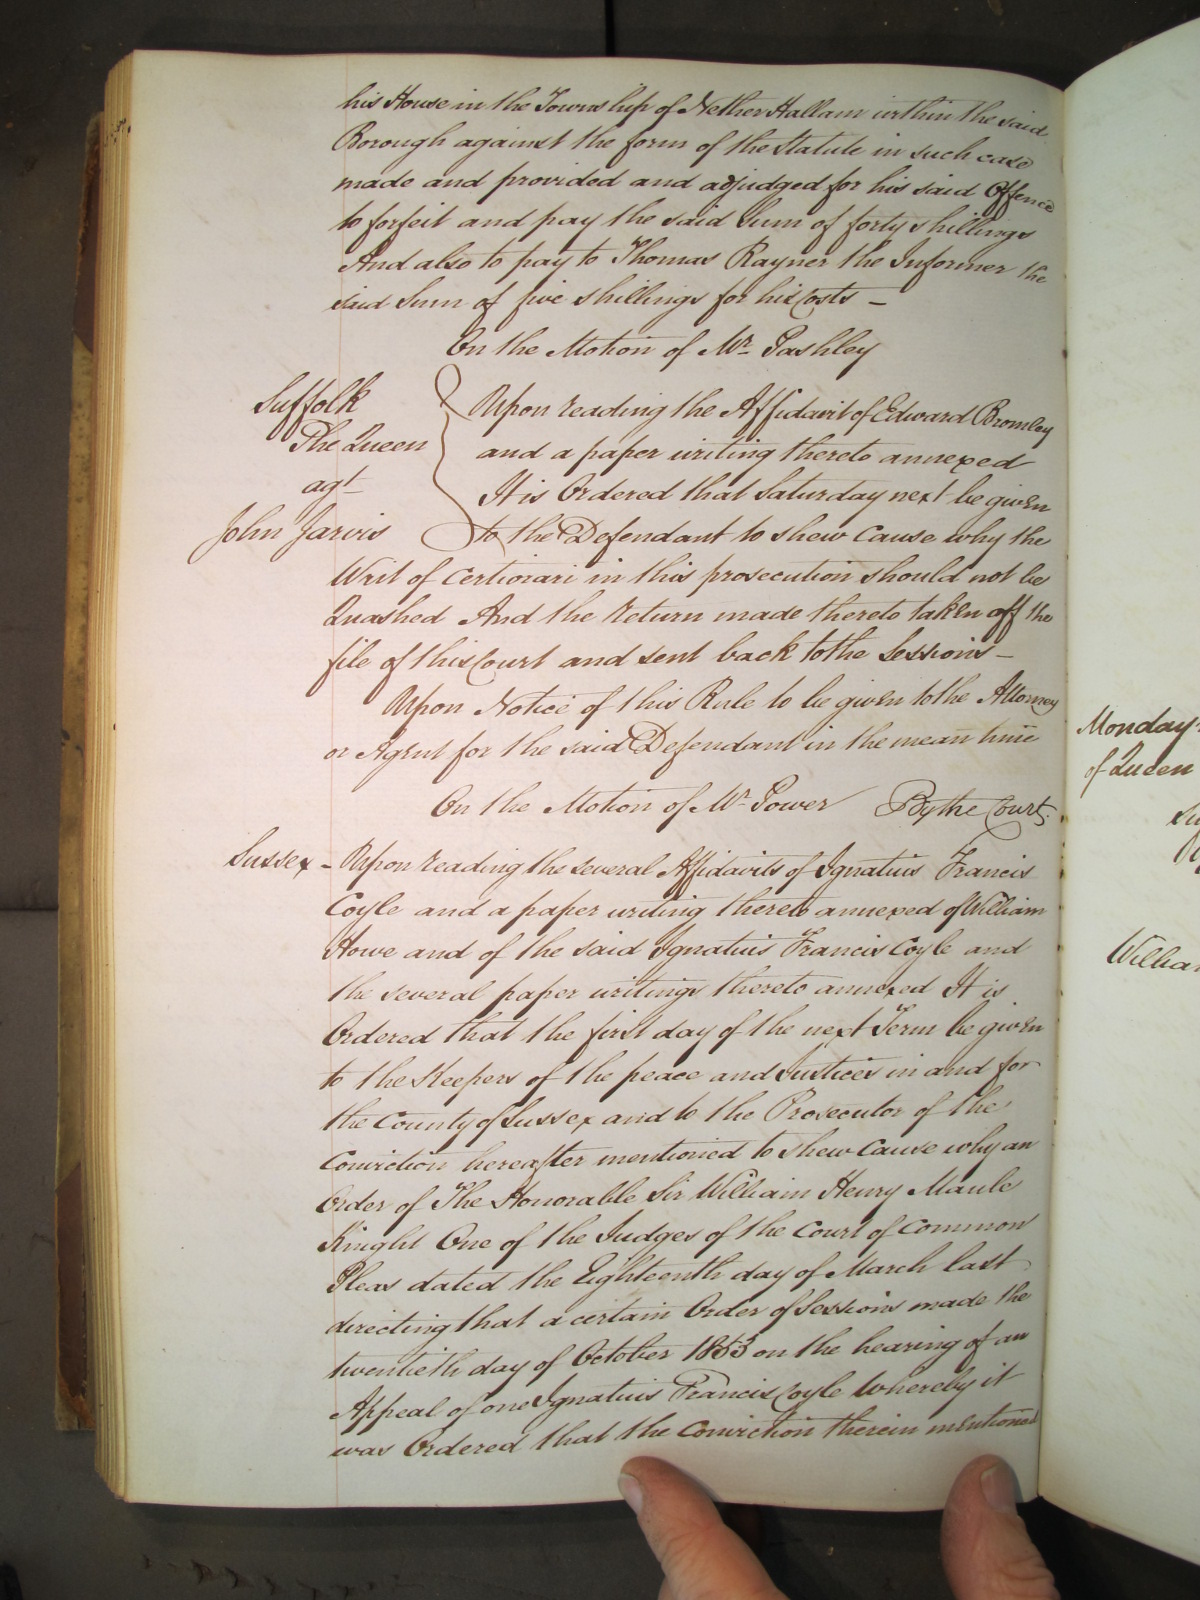 his House in the Township of Nether Hallam within the said
Borough against the form of the Statute in such case
made and provided and adjudged for his said Offence
to forfeit and pay the said Sum of forty shillings
And also to pay to Thomas Rayner the Informer the
said Sum of five shillings for his Costs –
On the Motion of Mr. Pashley
Suffolk
The Queen
agt
John Jarvis
Upon reading the Affidavit of Edward Bromley
and a paper writing thereto annexed
It is Ordered that Saturday next be given
to the Defendant to shew Cause why the
Writ of Certiorari in this prosecution should not be
Quashed And the return made thereto taken off the
file of this Court and sent back to the Sessions –
Upon Notice of this Rule to be given to the Attorney
or Agent for the said Defendant in the mean time
On the Motion of Mr. Power By the Court.
Sussex – Upon reading the several Affidavits of Ignatius Francis
Coyle and a paper writing thereto annexed of William
Howe and of the said Ignatius Francis Coyle and
the several paper writings thereto annexed It is
Ordered that the first day of the next Term be given
to the Keepers of the peace and Justices in and for
the County of Sussex and to the Prosecutor of the
Conviction hereafter mentioned to shew Cause why an
Order of The Honorable Sir William Henry Maule
Knight One of the Judges of the Court of Common
Pleas dated the Eighteenth day of March last
directing that a certain Order of Sessions made the
twentieth day of October 1853 on the hearing of an
Appeal of one Ignatius Francis Coyle whereby it
was Ordered that the Conviction therein mentioned
Monday
of Queen